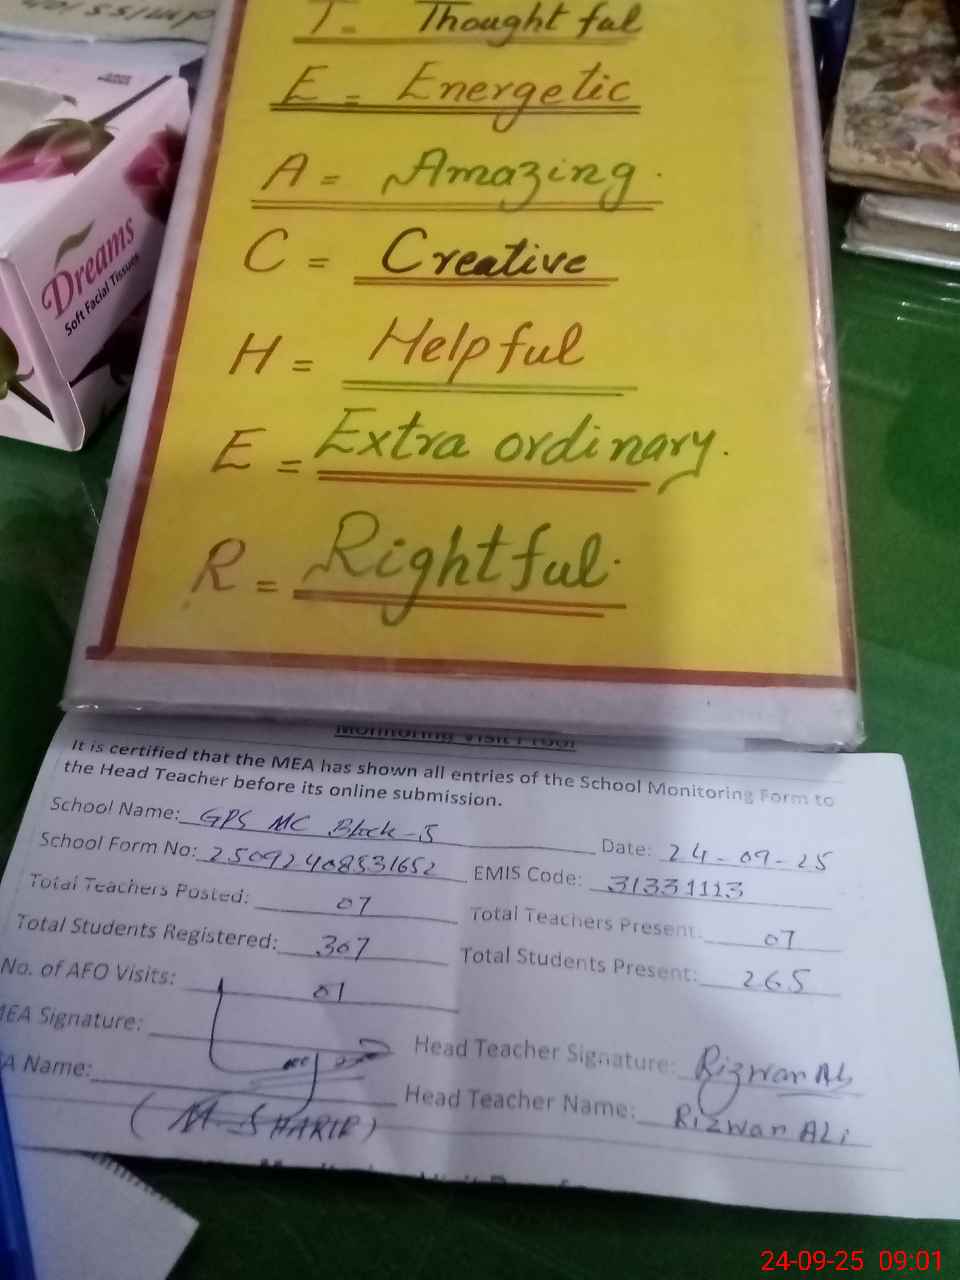 T = Thought ful
E = Energetic
A = Amazing.
C = Creative
H = Helpful
E = Extra ordinary.
R = Rightful.
Dreams
Soft Facial Tissues
Monitoring Visit Proof
It is certified that the MEA has shown all entries of the School Monitoring Form to
the Head Teacher before its online submission.
School Name: GPS MC Block-5 Date: 24-09-25
School Form No: 25092408531652 EMIS Code: 31331113
Total Teachers Posted: 07 Total Teachers Present: 07
Total Students Registered: 307 Total Students Present: 265
No. of AFO Visits: 01
MEA Signature: Head Teacher Signature: Rizwan Ali
A Name: Head Teacher Name: Rizwan ALi
(M. SHARIF)
24-09-25 09:01